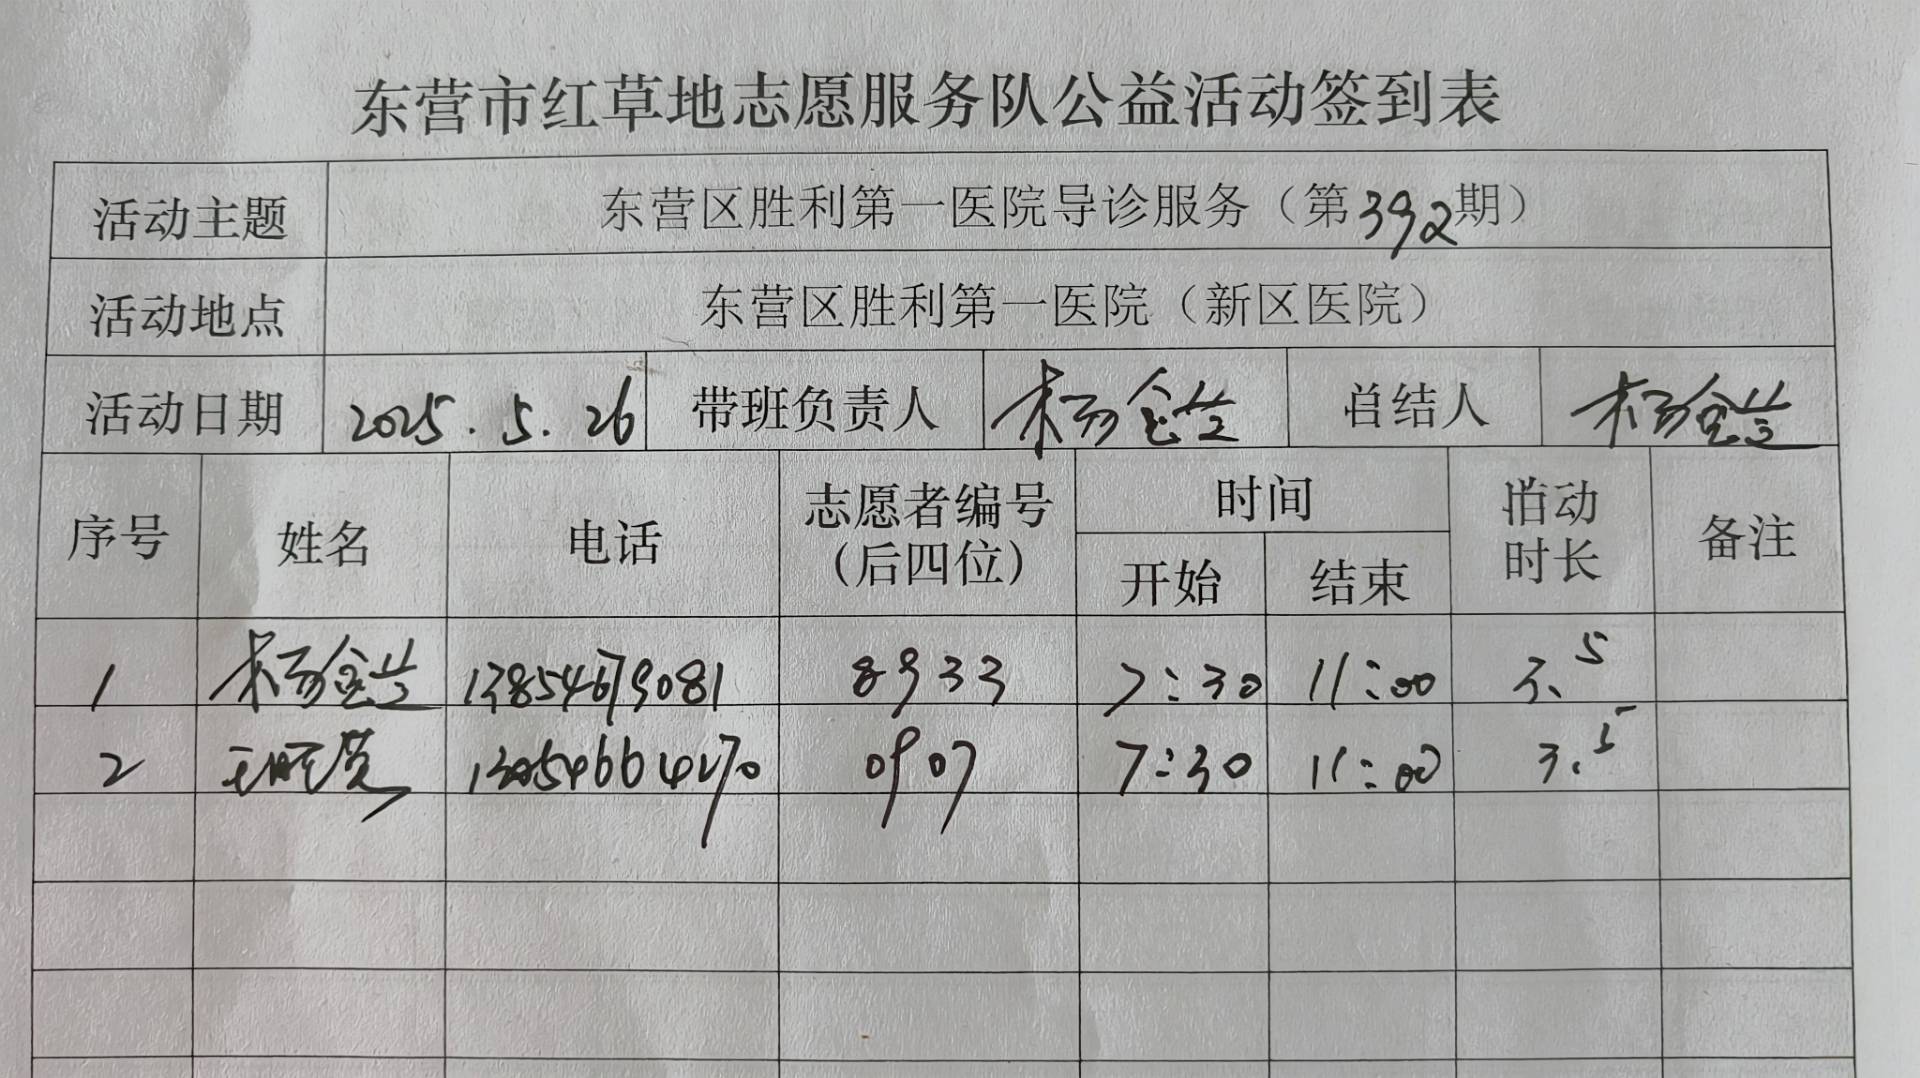 东营市红草地志愿服务队公益活动签到表
活动主题 东营区胜利第一医院导诊服务（第392期）
活动地点 东营区胜利第一医院（新区医院）
活动日期 2025.5.26 带班负责人 杨金兰 总结人 杨金兰
序号 姓名 电话 志愿者编号（后四位） 时间 开始 结束 活动时长 备注
1 杨金兰 13854679081 8933 7:30 11:00 3.5
2 王 0907 7:30 11:00 3.5